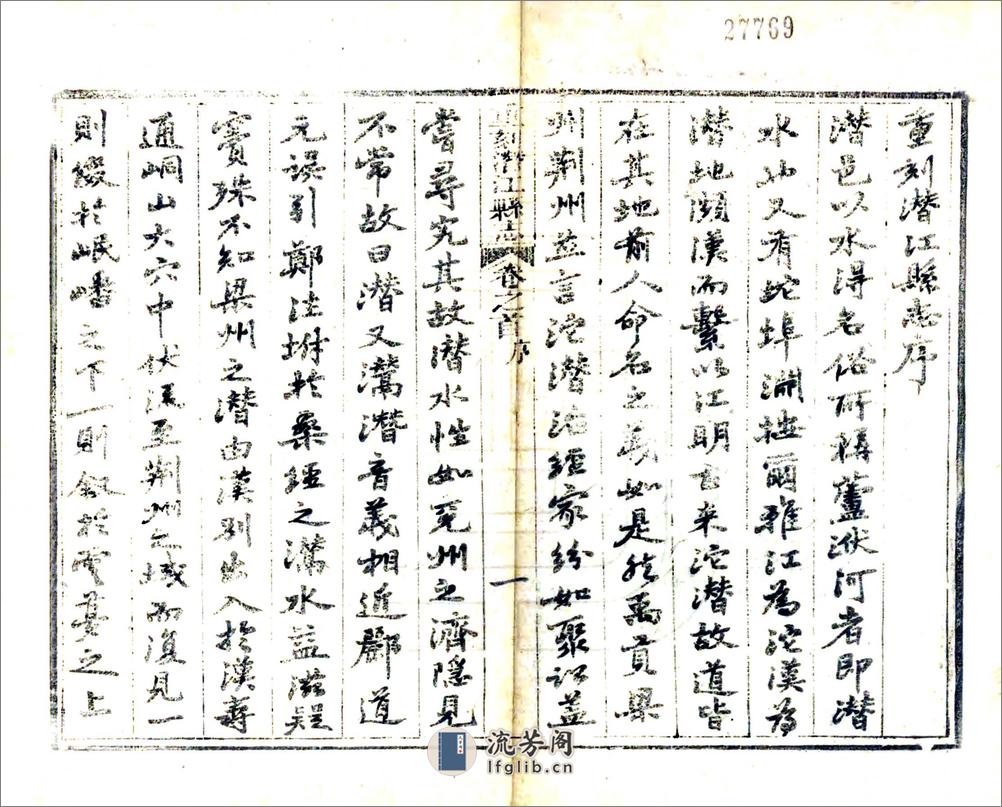 27769
重刻潛江縣志序
潛邑以水得名俗所稱蘆洑河者即潛
水也又有蛇埠淵按爾雅江為沱漢為
潛地瀕漢而繫以江明古來沱潛故道皆
在其地前人命名之義如是然禹貢梁
州荊州並言沱潛治經家紛如聚訟蓋
重刻潛江縣志 卷之首 序 一
嘗尋究其故潛水性如兗州之濟隱見
不常故曰潛又灊潛音義相近酈道
元誤引鄭注坿於桑經之灊水益滋疑
竇殊不知梁州之潛由漢別出入於漢壽
通峒山大穴中伏流至荊州之域而復見一
則綴於岷嶓之下一則敘於雲夢之上
流芳阁
lfglib.cn